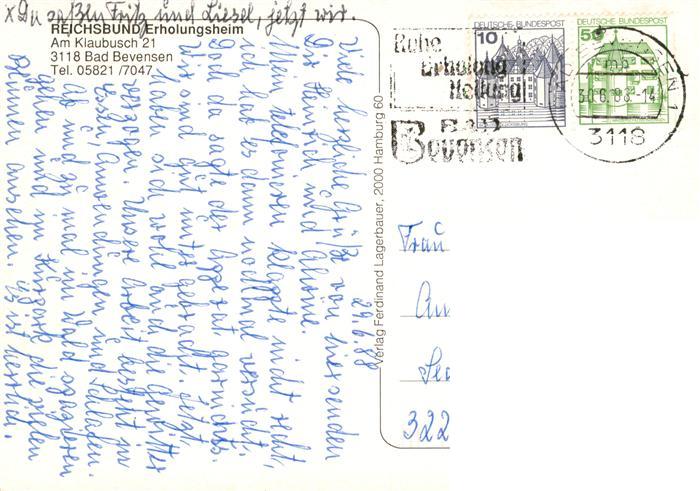 x Da saßen Fritz und Liesel, jetzt wir.
REICHSBUND/Erholungsheim
Am Klaubusch 21
3118 Bad Bevensen
Tel. 05821 /7047
29.6.88
Viele herzliche Grüße von uns senden
Dir Heinrich und Änne.
Mit telefonieren klappte nicht recht,
ich hab es dann nochmal versucht,
doch da sagte der Apparat garnichts.
Wir sind gut untergebracht. Jetzt
haben sich wohl auch die Gewitter
verzogen. Unsere Arbeit besteht in
essen, Anwendungen und schlafen.
Ab und zu mal im Wald spazieren
gehen und im Kurpark die vielen
ansehen. Es ist herrlich.
Verlag Ferdinand Lagerbauer, 2000 Hamburg 60
DEUTSCHE BUNDESPOST
10
DEUTSCHE BUNDESPOST
50
Ruhe
Erholung
Heilung
BAD
Bevensen
30.6.88-14
mb
3118
Frau
322